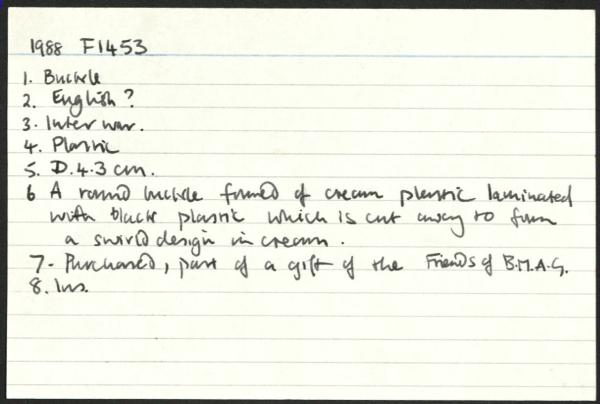 1988 F1453
1. Buckle
2. English?
3. Inter war.
4. Plastic
5. D. 4.3 cm.
6 A round buckle formed of cream plastic laminated
with black plastic which is cut away to form
a swirled design in cream.
7- Purchased, part of a gift of the Friends of B.M.A.G.
8. Ins.